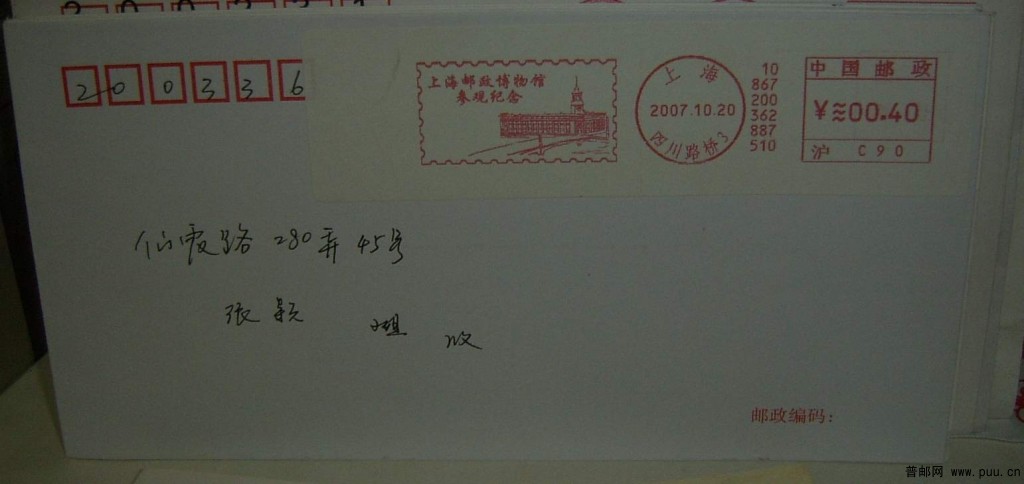 200336
上海邮政博物馆
参观纪念
上海
2007.10.20
四川路桥3
10
867
200
362
887
510
中国邮政
¥≈00.40
沪 C90
仙霞路 280弄 45号
张颖 收
邮政编码:
普邮网 www.puu.cn